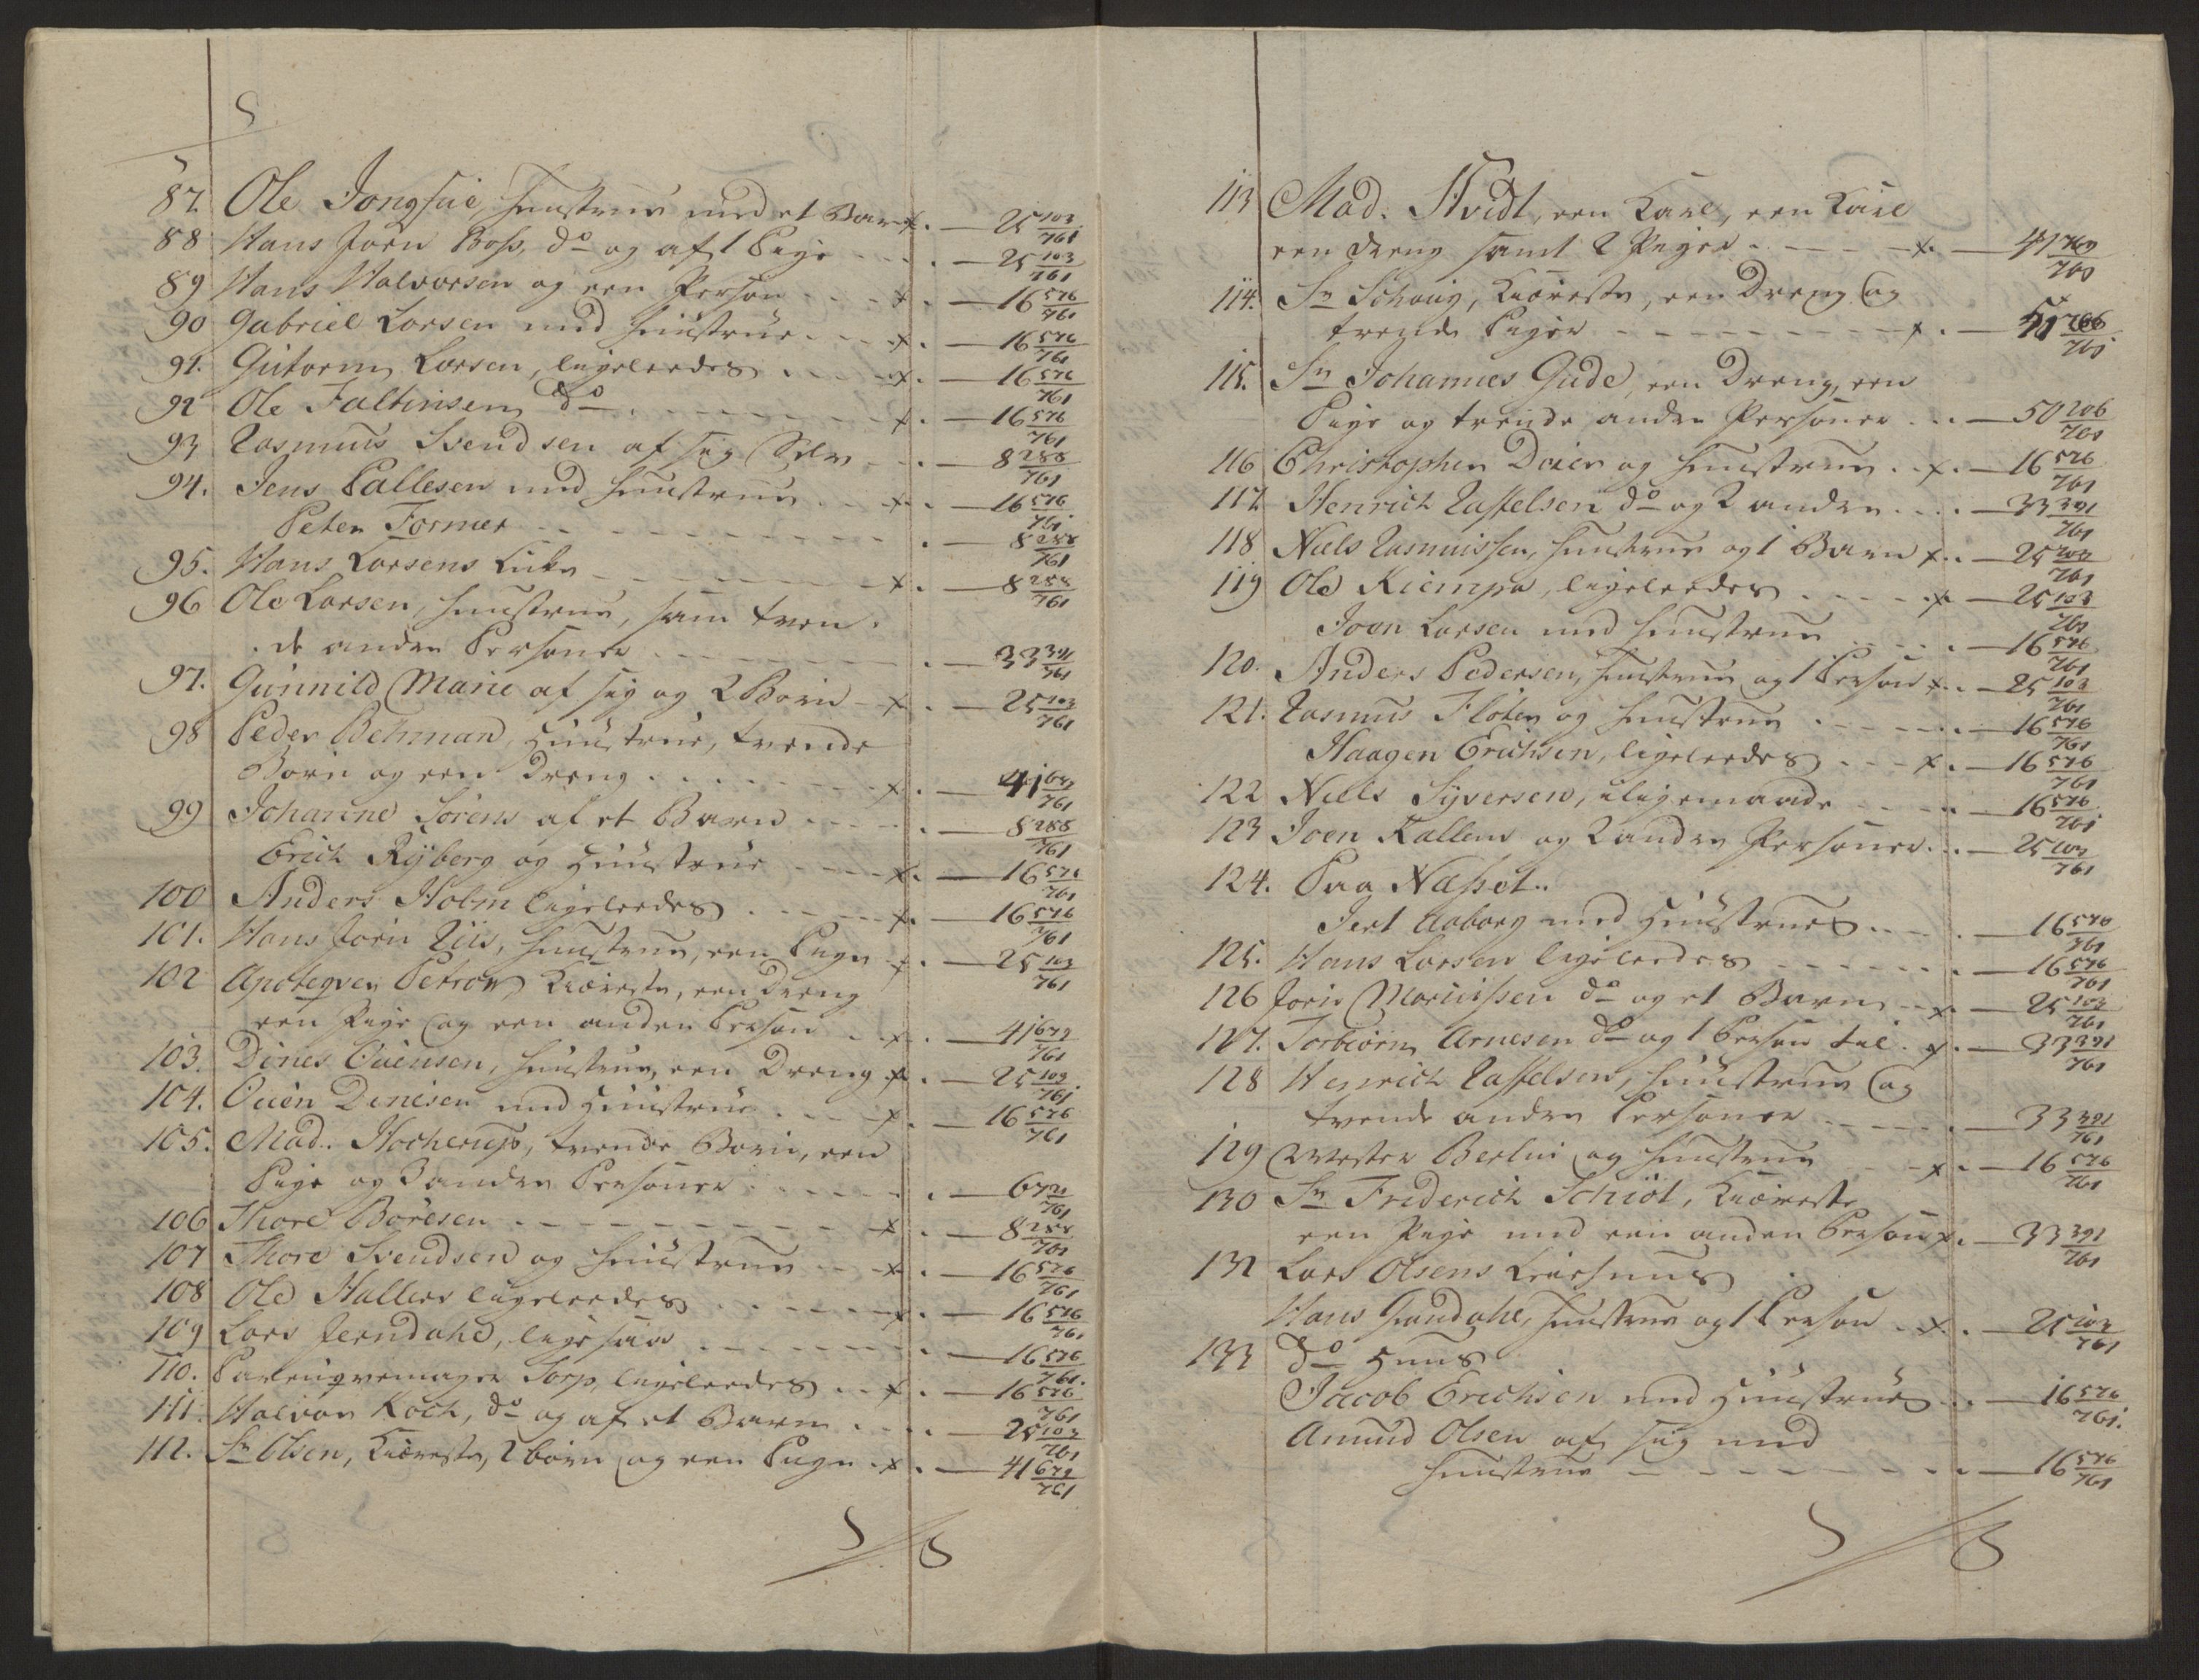 87. Ole Jongsue, hustrue med et Barn x. — 25 103/761
88 Hans Jørn Boss, do og af 1 Pige - - - . — 25 103/761
89 Hans Halvorsen og een Person . . . x . — 16 576/761
90 Gabriel Larsen med hustrue . . - x . — 16 576/761
91. Gutorm Larsen, ligeleedes . . . . x . — 16 576/761
92 Ole Faltinsen do . - - - - - - x . — 16 576/761
93 Rasmus Svendsen af sig Selv - - . — 8 288/761
94. Jens Pallesen med hustrue . . x . — 16 576/761
Peter Former - - - - - - - - . — 8 288/761
95. Hans Larsens Enke - - - - - - x . — 8 288/761
96 Ole Larsen, hustrue, samt tven-
de andre Personer - - - - - - - . — 33 391/761
97. Gunnild Marie af sig og 2 Børn - x . — 25 103/761
98 Peder Behman, Hustrue, trende
Børn og een Dreng . . . - - - - x . — 41 679/761
99 Johanne Sørens af et Barn - - - . — 8 288/761
Erich Ryberg og Hustrue - - - x . — 16 576/761
100 Anders Holm ligeleedes . - - - x . — 16 576/761
101. Hans Jørn Riis, hustrue, een Pige x . — 25 103/761
102 Apoteqver Petron Kiæreste, een Dreng
een Pige og een anden Person . . x . — 41 679/761
103. Dines Ouensen, hustrue, een Dreng x . — 25 103/761
104. Ouen Dinesen med Hustrue . - - x . — 16 576/761
105. Mad. Hocherup, trende Børn, een
Pige og 3 andre Personer . - - - . . — 67 21/761
106 Thore Børesen . - - - - - - - - x . — 8 288/761
107 Thore Svendsen og hustrue - - x . — 16 576/761
108 Ole Hallers ligeleedes . . . - - x . — 16 576/761
109 Lars Jerndahl, ligesaa . - - - - - . — 16 576/761
110. Parleuqvemager Torp, ligeleedes . . x . — 16 576/761
111. Halvor Koch, do og af et Barn . . . . — 25 103/761
112. Sr Olsen, Kiæreste, 2 børn og een Pige . x . — 41 679/761
113 Mad. Hvidt, een Karl, een Karl
een Dreng samt 2 Piger . - - - x . — 41 769/761
114. Sr Schoug, Kiæreste, een Dreng og
trende Piger - - - - - - - - - x . —
115. Sr Johannes Gude, een Dreng, een
Pige og trende andre Personer . . . — 50 206/761
116 Christopher Daier og hustrue . . x . — 16 576/761
117. Henrich Tasselsen do og 2 andre . . . . — 33 391/761
118 Niels Rasmussen, hustrue og 1 Barn x . . — 25 103/761
119 Ole Kiempe, ligeleedes . - - - . x . — 25 103/761
Joon Larsen med hustrue . . . . . — 16 576/761
120. Anders Pedersen, hustrue og 1 Person x . . — 25 103/761
121. Rasmus Fløter og hustrue . - - - . — 16 576/761
Haagen Erichsen, ligeleedes . - - x . — 16 576/761
122 Niels Syversen, iligemaade - - - . — 16 576/761
123 Joen Kallem og 2 andre Personer . . . — 25 103/761
124. Paa Næsset..
Jert Aaborg med Hustrue . . - - . — 16 576/761
125. Hans Larsen ligeleedes - - - - - . — 16 576/761
126 Jørn Mortissen do og et Barn - - x . — 25 103/761
127. Torbiørn Arnesen do og 1 Person til . x . — 33 391/761
128 Henrich Tasselsen, hustrue og
tvende andre Personer - - - - - . — 33 391/761
129 Mester Berlin og hustrue - - x . — 16 576/761
130 Sr Friderich Schiøt, Kiæreste
een Pige med een anden Person x . — 33 391/761
132 Lars Olsens Leiehuus
Hans Grandahl, hustrue og 1 Person . x . — 25 103/761
133 do Huus
Jacob Erichsen med Hustrue . . — 16 576/761
Amund Olsen af sig med
hustrue - - - - - - - - . — 16 576/761